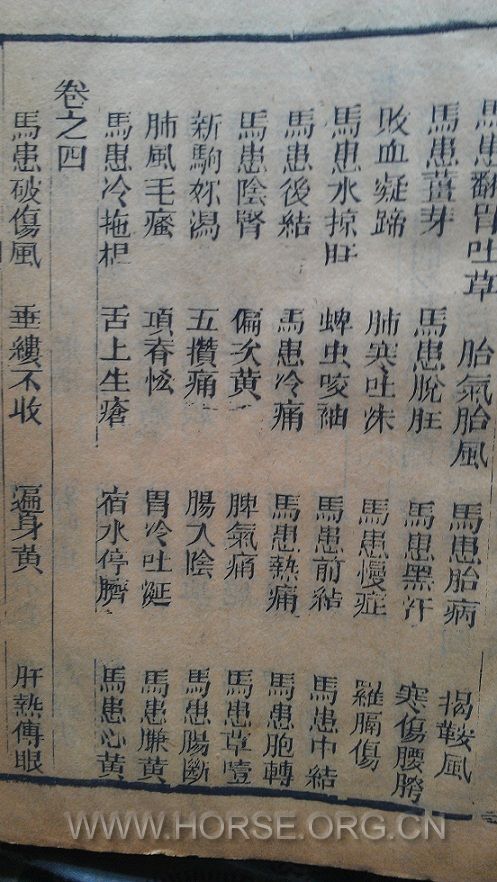 馬患翻胃吐草 胎氣胎風 馬患胎病 揭鞍風
馬患薑芽 馬患脫肛 馬患黑汗 寒傷腰胯
敗血凝蹄 肺寒吐沫 馬患慢症 羅膈傷
馬患水掠肛 蜱虫咬袖 馬患前結 馬患中結
馬患後結 馬患冷痛 馬患熱痛 馬患胞轉
馬患陰腎 偏次黃 脾氣痛 馬患草噎
新駒妳瀉 五攢痛 腸入陰 馬患腸斷
肺風毛瘙 項脊恡 胃冷吐涎 馬患膁黃
馬患冷拖桿 舌上生瘡 宿水停臍 馬患心黃
卷之四
馬患破傷風 垂縷不收 遍身黃 肝熱傳眼
WWW.HORSE.ORG.CN